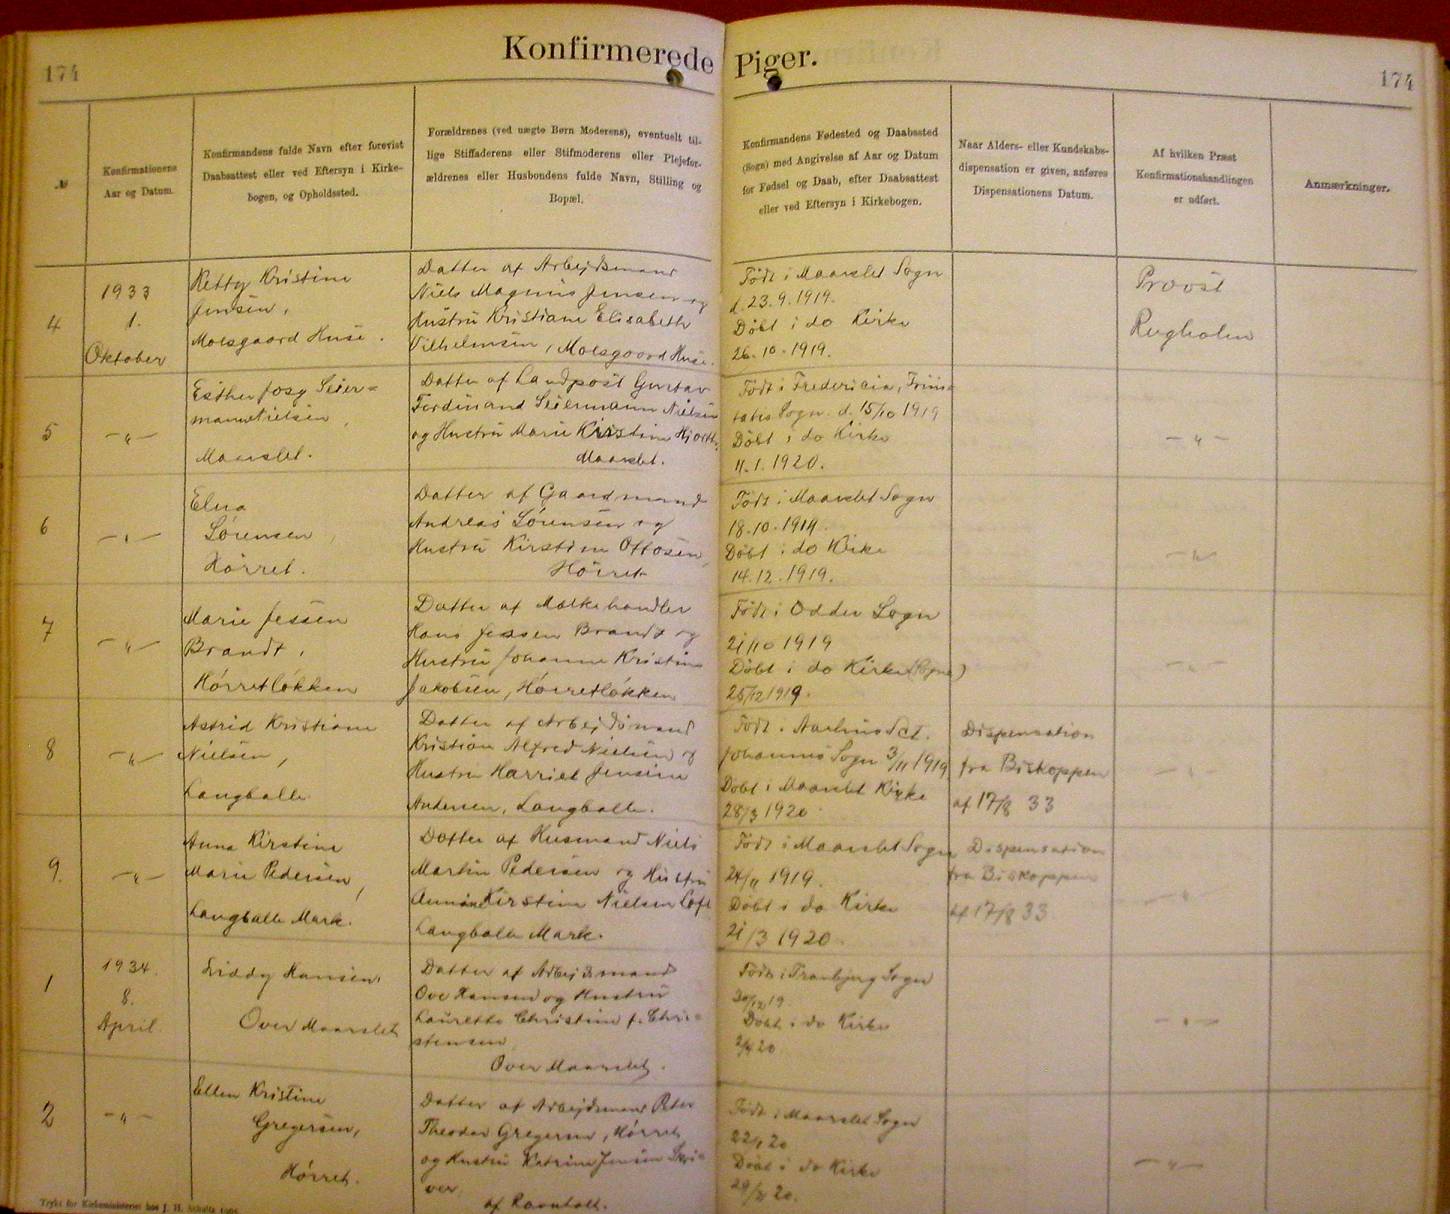 174
Konfirmerede Piger.
174
№
Konfirmationens
Aar og Datum.
Konfirmandens fulde Navn efter forevist
Daabsattest eller ved Eftersyn i Kirke-
bogen, og Opholdssted.
Forældrenes (ved uægte Børn Moderens), eventuelt til-
lige Stiffaderens eller Stifmoderens eller Plejefor-
ældrenes eller Husbondens fulde Navn, Stilling og
Bopæl.
Konfirmandens Fødested og Daabssted
(Sogn) med Angivelse af Aar og Datum
for Fødsel og Daab, efter Daabsattest
eller ved Eftersyn i Kirkebogen.
Naar Alders- eller Kundskabs-
dispensation er given, anføres
Dispensationens Datum.
Af hvilken Præst
Konfirmationshandlingen
er udført.
Anmærkninger.
4
1933
1.
Oktober
Ketty Kristine
Jensen,
Moesgaard Huse.
Datter af Arbejdsmand
Niels Magnus Jensen og
Hustru Kristiane Elisabeth
Vilhelmsen, Moesgaard Huse.
Født i Maarslet Sogn
d. 23.9.1919.
Døbt i do Kirke
26.10.1919.
Provst
Rugholm
5
-"-
Esther Josy Seier=
mann Nielsen,
Maarslet.
Datter af Landpost Gustav
Ferdinand Seiermann Nielsen
og Hustru Marie Kirstine Hjorth,
Maarslet.
Født i Fredericia, Trini=
tatis Sogn. d. 15/10 1919
Døbt i do Kirke
11.1.1920.
-"-
6
-"-
Elna
Sørensen,
Hørret.
Datter af Gaardmand
Andreas Sørensen og
Hustru Kirstine Ottosen,
Hørret
Født i Maarslet Sogn
18.10.1919.
Døbt i do Kirke
14.12.1919.
-"-
7
-"-
Marie Jessen
Brandt,
Hørretløkken
Datter af Mælkehandler
Hans Jessen Brandt og
Hustru Johanne Kristine
Jakobsen, Hørretløkken
Født i Odder Sogn
21/10 1919
Døbt i do Kirke (Sogn)
25/12 1919.
-"-
8
-"-
Astrid Kristiane
Nielsen,
Langballe
Datter af Arbejdsmand
Kristian Alfred Nielsen og
Hustru Harriet Jensine
Andersen, Langballe.
Født i Aarhus Sct.
Johannes Sogn 3/11 1919
Døbt i Maarslet Kirke
28/3 1920
Dispensation
fra Biskoppen
af 17/8 33
-"-
9.
-"-
Anna Kirstine
Marie Pedersen,
Langballe Mark.
Datter af Husmand Niels
Martin Pedersen og Hustru
Kirstine Nielsen Loft
Langballe Mark.
Født i Maarslet Sogn
24/11 1919.
Døbt i do Kirke
21/3 1920.
Dispensation
fra Biskoppen
af 17/8 33
-"-
1
1934.
8.
April
Liddy Hansen,
Over Maarslet
Datter af Arbejdsmand
Ove Hansen og Hustru
Lauretta Christine f. Chri=
stensen
Over Maarslet.
Født i Tranbjerg Sogn
30/12 19.
Døbt i do Kirke
2/4 20
-"-
2
-"-
Ellen Kristine
Gregersen,
Hørret.
Datter af Arbejdsmand Peter
Theodor Gregersen, Hørret
og Hustru Katrine Jensen Skri=
ver,
af Ravnholt.
Født i Maarslet Sogn
20
Døbt i do Kirke
20.
-"-
Trykt for Kirkeministeriet hos J. H. Schultz